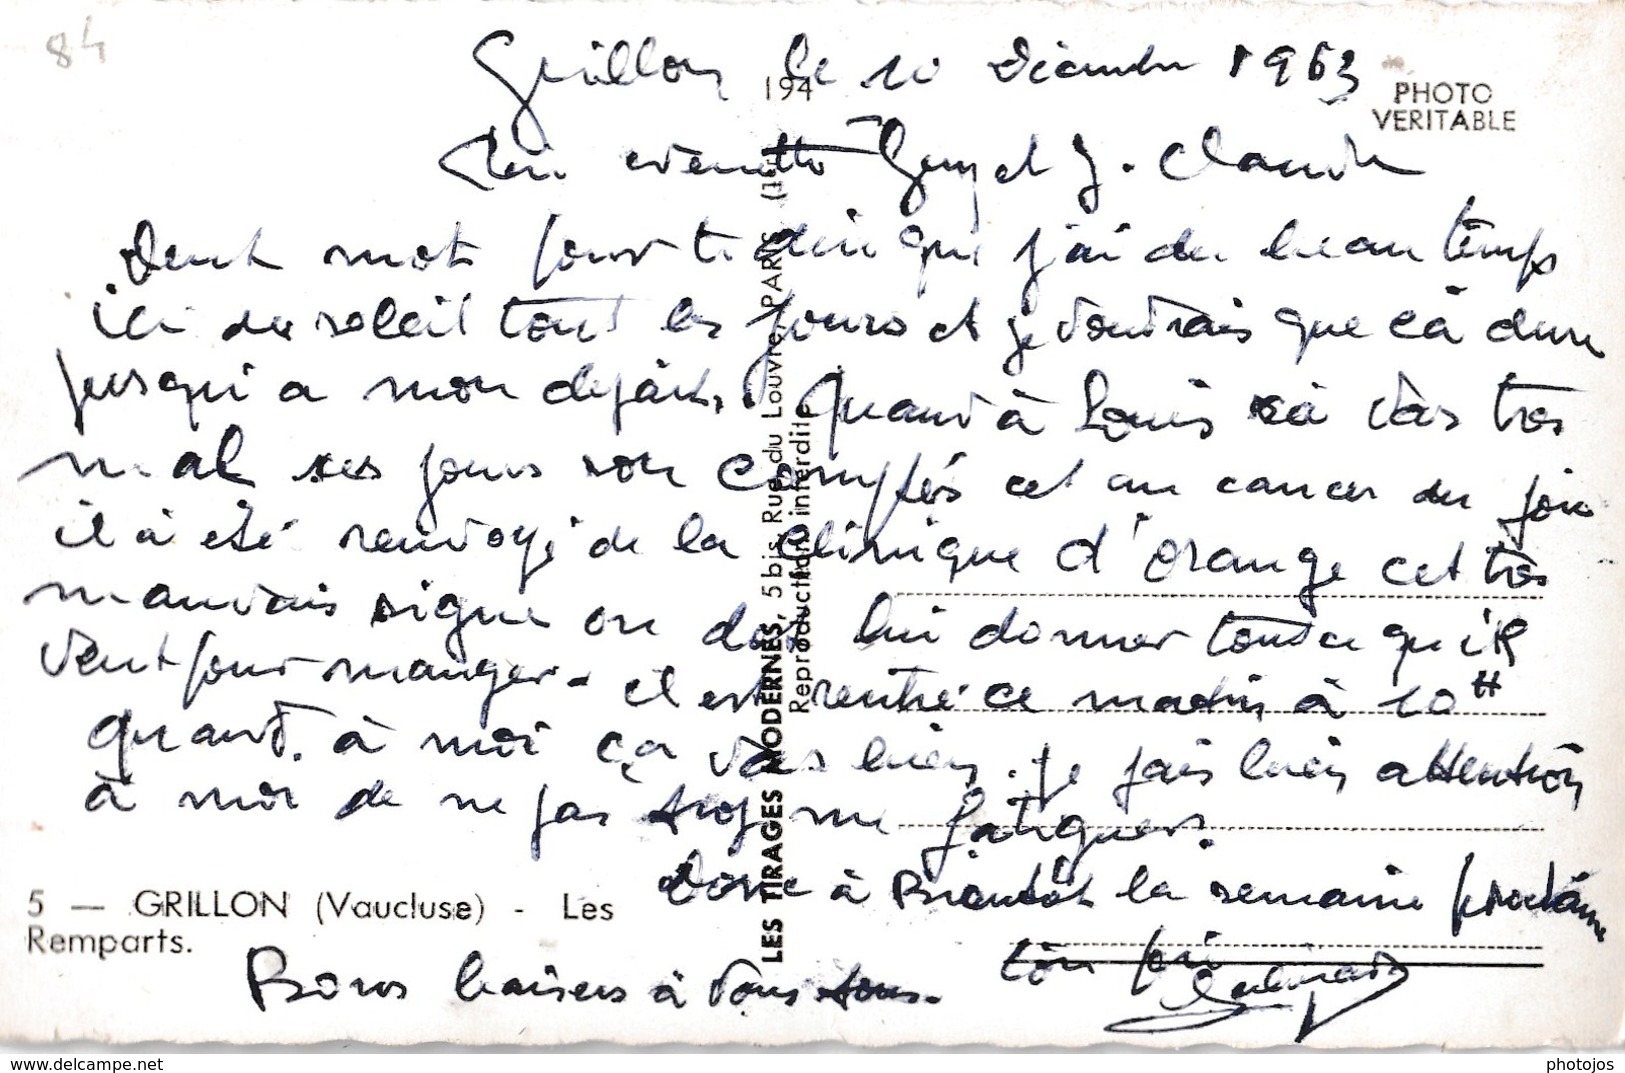 84
Grillon le 10 décembre 1963
194
PHOTO
VERITABLE
Guy et J. Claude
Deux mot pour te dire que j'ai du beau temps
ici du soleil tout les jours et je voudrais que cà dure
jusqui a mon départ. Quand à Louis cà vas tres
mal ses jours son comptés cet un cancer du foie
il à été renvoyé de la clinique d'orange cet très
mauvais signe on doit lui donner tout ce qu'il
veut pour manger - il est rentré ce matin à 10 H
quand à moi ça vas bien. je fais bien attention
à moi de ne pas trop me fatiguer.
Donc à Bientôt la semaine prochaine
5 — GRILLON (Vaucluse) - Les
Remparts.
Bons baisers à vous tous.
ton
LES TIRAGES MODERNES, 5 bis Rue du Louvre, PARIS
Reproduction interdite
delcampe.net
photojos